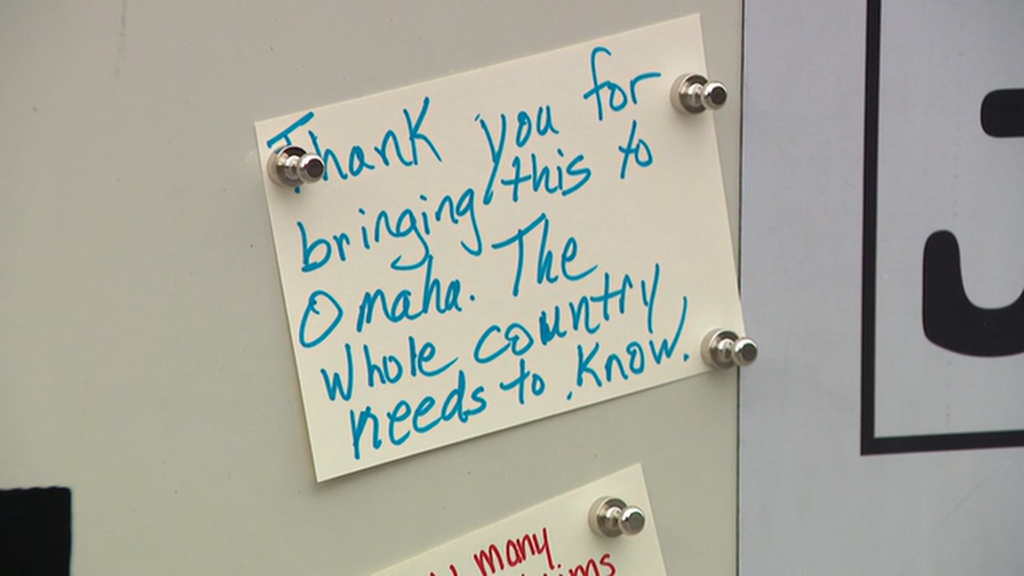 Thank you for
bringing this to
Omaha. The
whole country
needs to know.
many